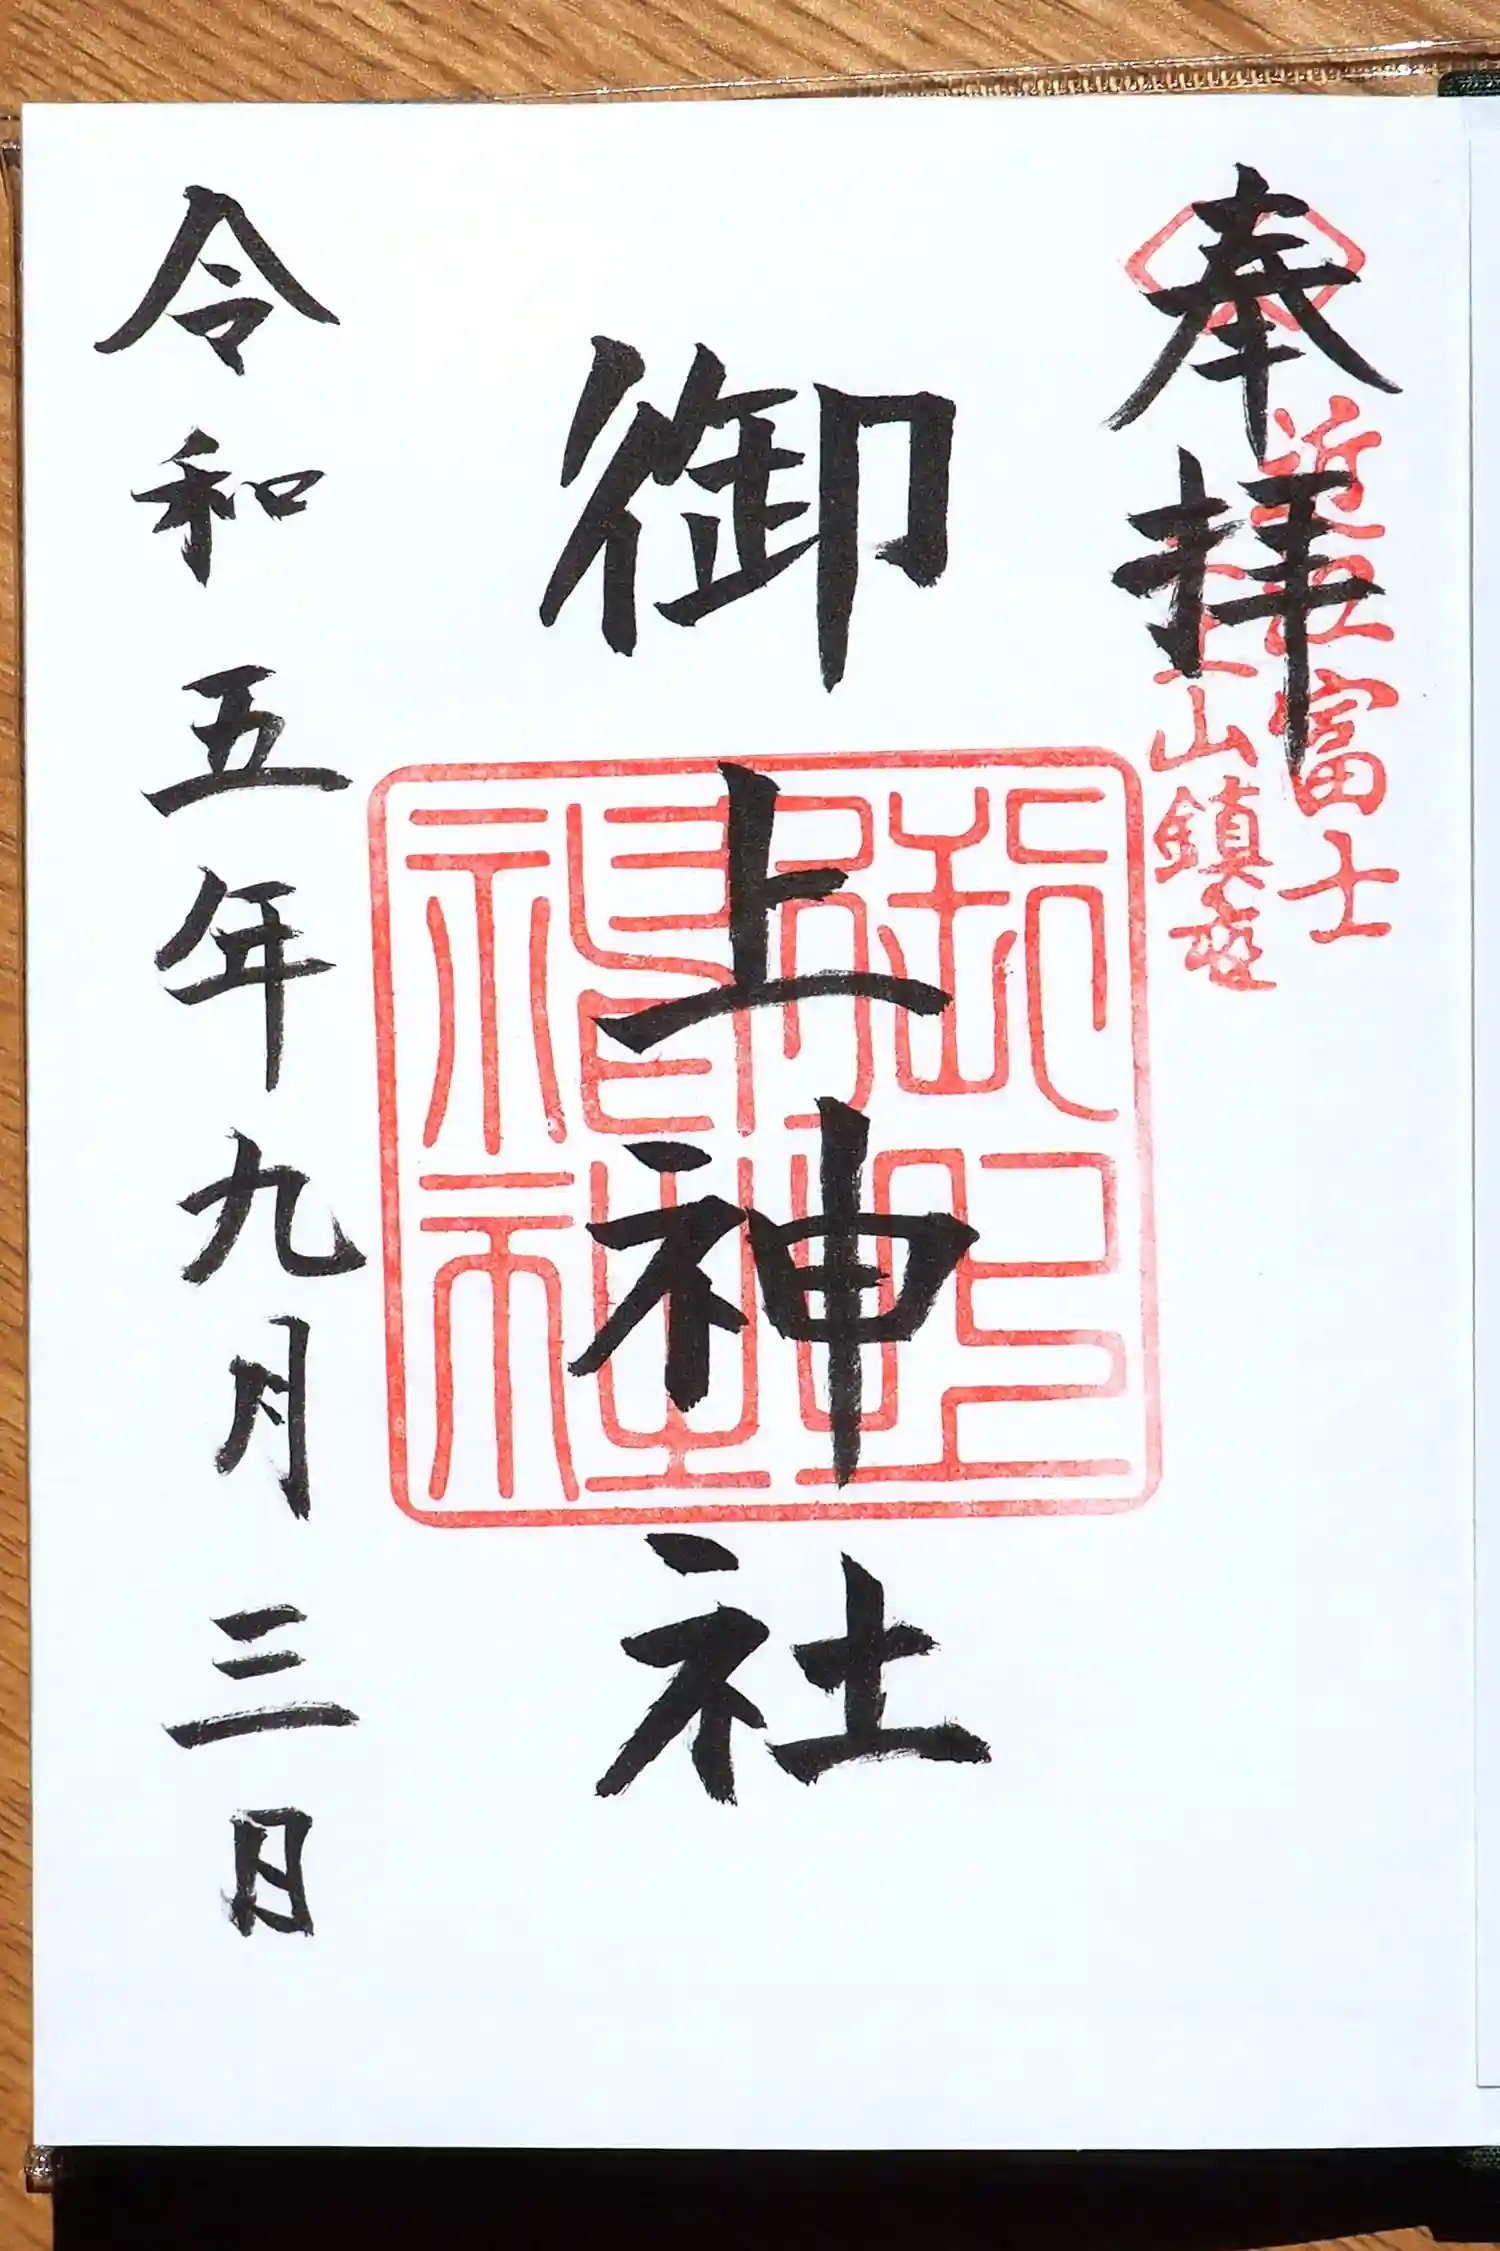 奉拝
近江富士
三上山鎮座
御上神社
令和五年九月三日